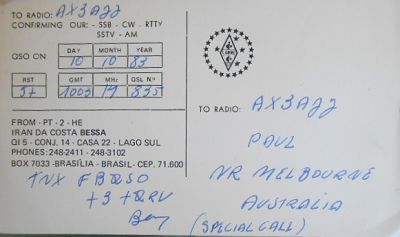 TO RADIO: AX3AJJ
CONFIRMING OUR: - SSB - CW - RTTY
SSTV - AM
QSO ON
DAY MONTH YEAR
10 10 83
RST GMT MHz QSL Nº
5+ 1003 14 835
FROM - PT - 2 - HE
IRAN DA COSTA BESSA
QI 5 - CONJ. 14 - CASA 22 - LAGO SUL
PHONES: 248-2411 - 248-3102
BOX 7033 - BRASÍLIA - BRASIL - CEP. 71.600
TNX FB QSO
+3 + QRV
TO RADIO: AX3AJJ
PAUL
NR MELBOURNE
AUSTRALIA
(SPECIAL CALL)